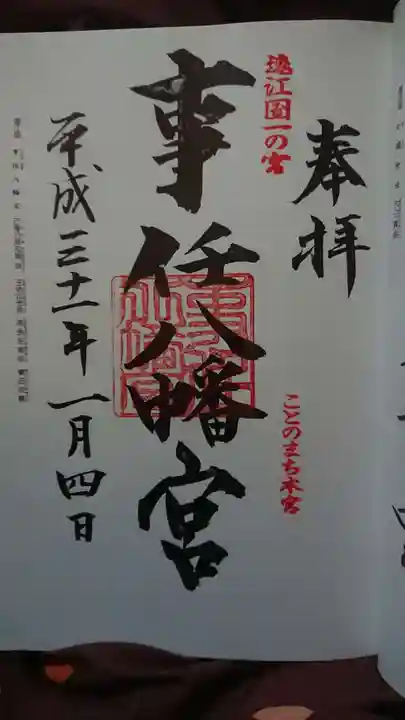 奉拝
遠江國一の宮
ことのまち本宮
事任八幡宮
平成三十一年一月四日